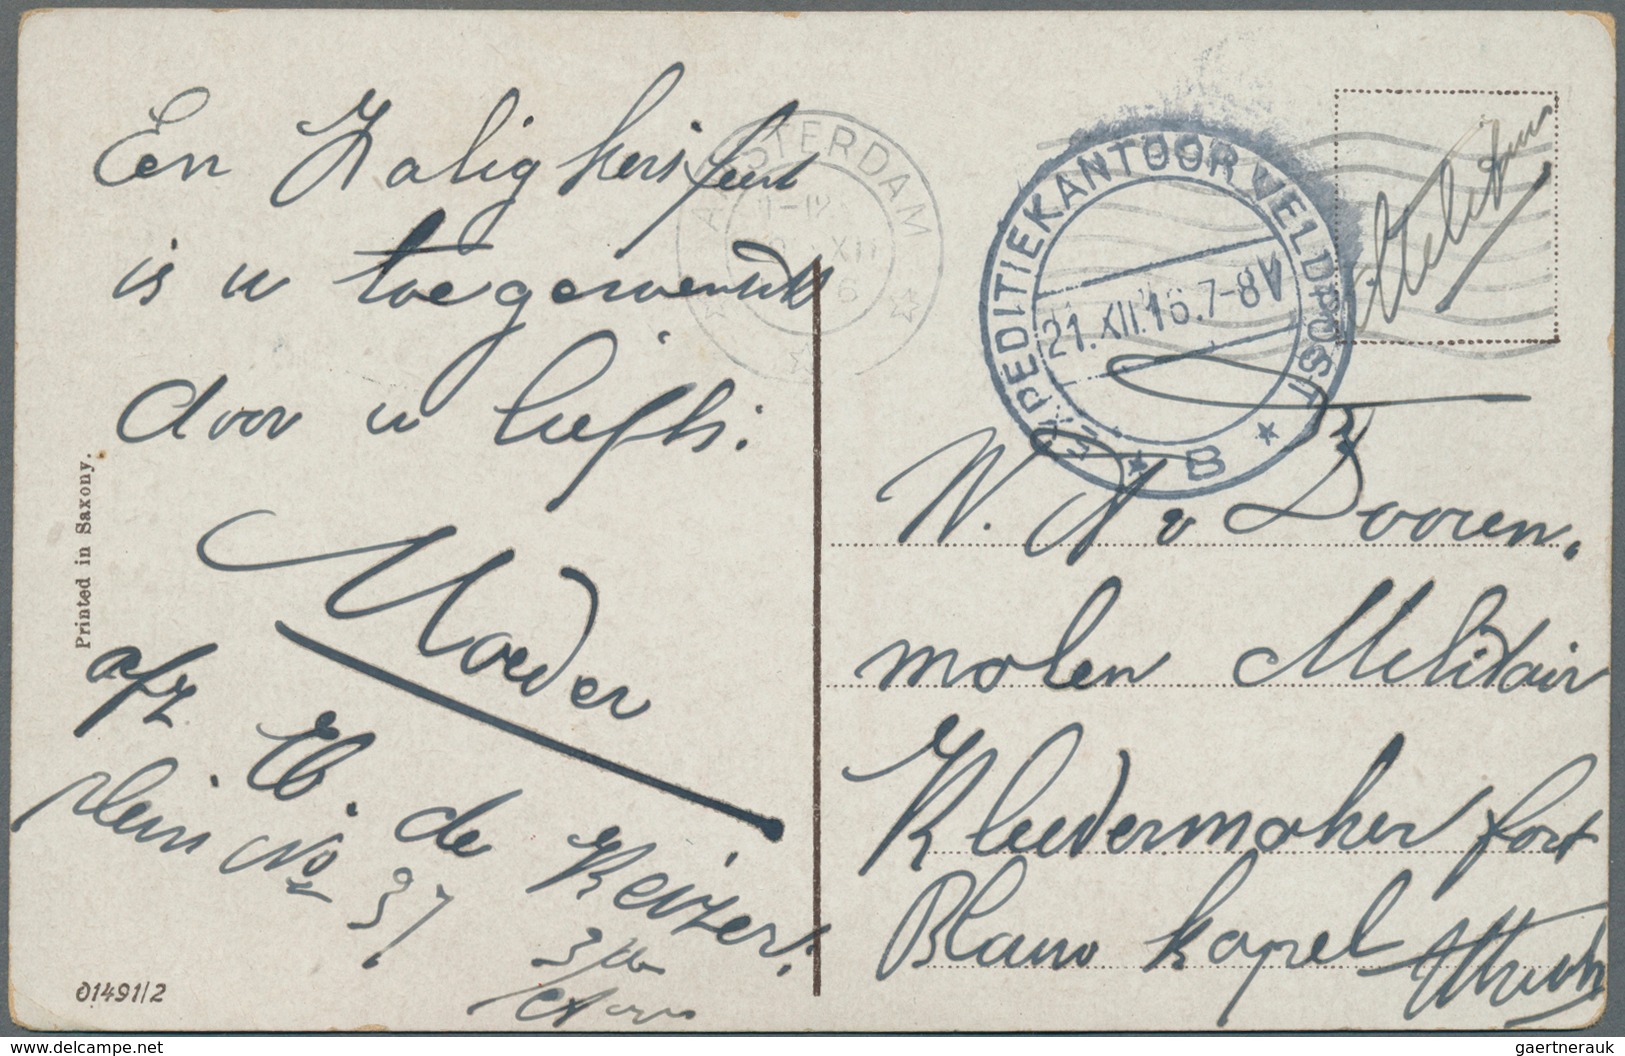 En Zalig kersfeest
is u toegewenscht
door u liefh.
Moeder
afz Eb. de Keizer.
plein No 37
Printed in Saxony.
01491/2
AMSTERDAM
XII
EXPEDITIEKANTOOR VELDPOST
21.XII.16.7-8V
B
W. N v Dooren.
molen Militair
Kleedermaker fort
Blauw kapel Utrech
delcampe.net
gaertnerauk